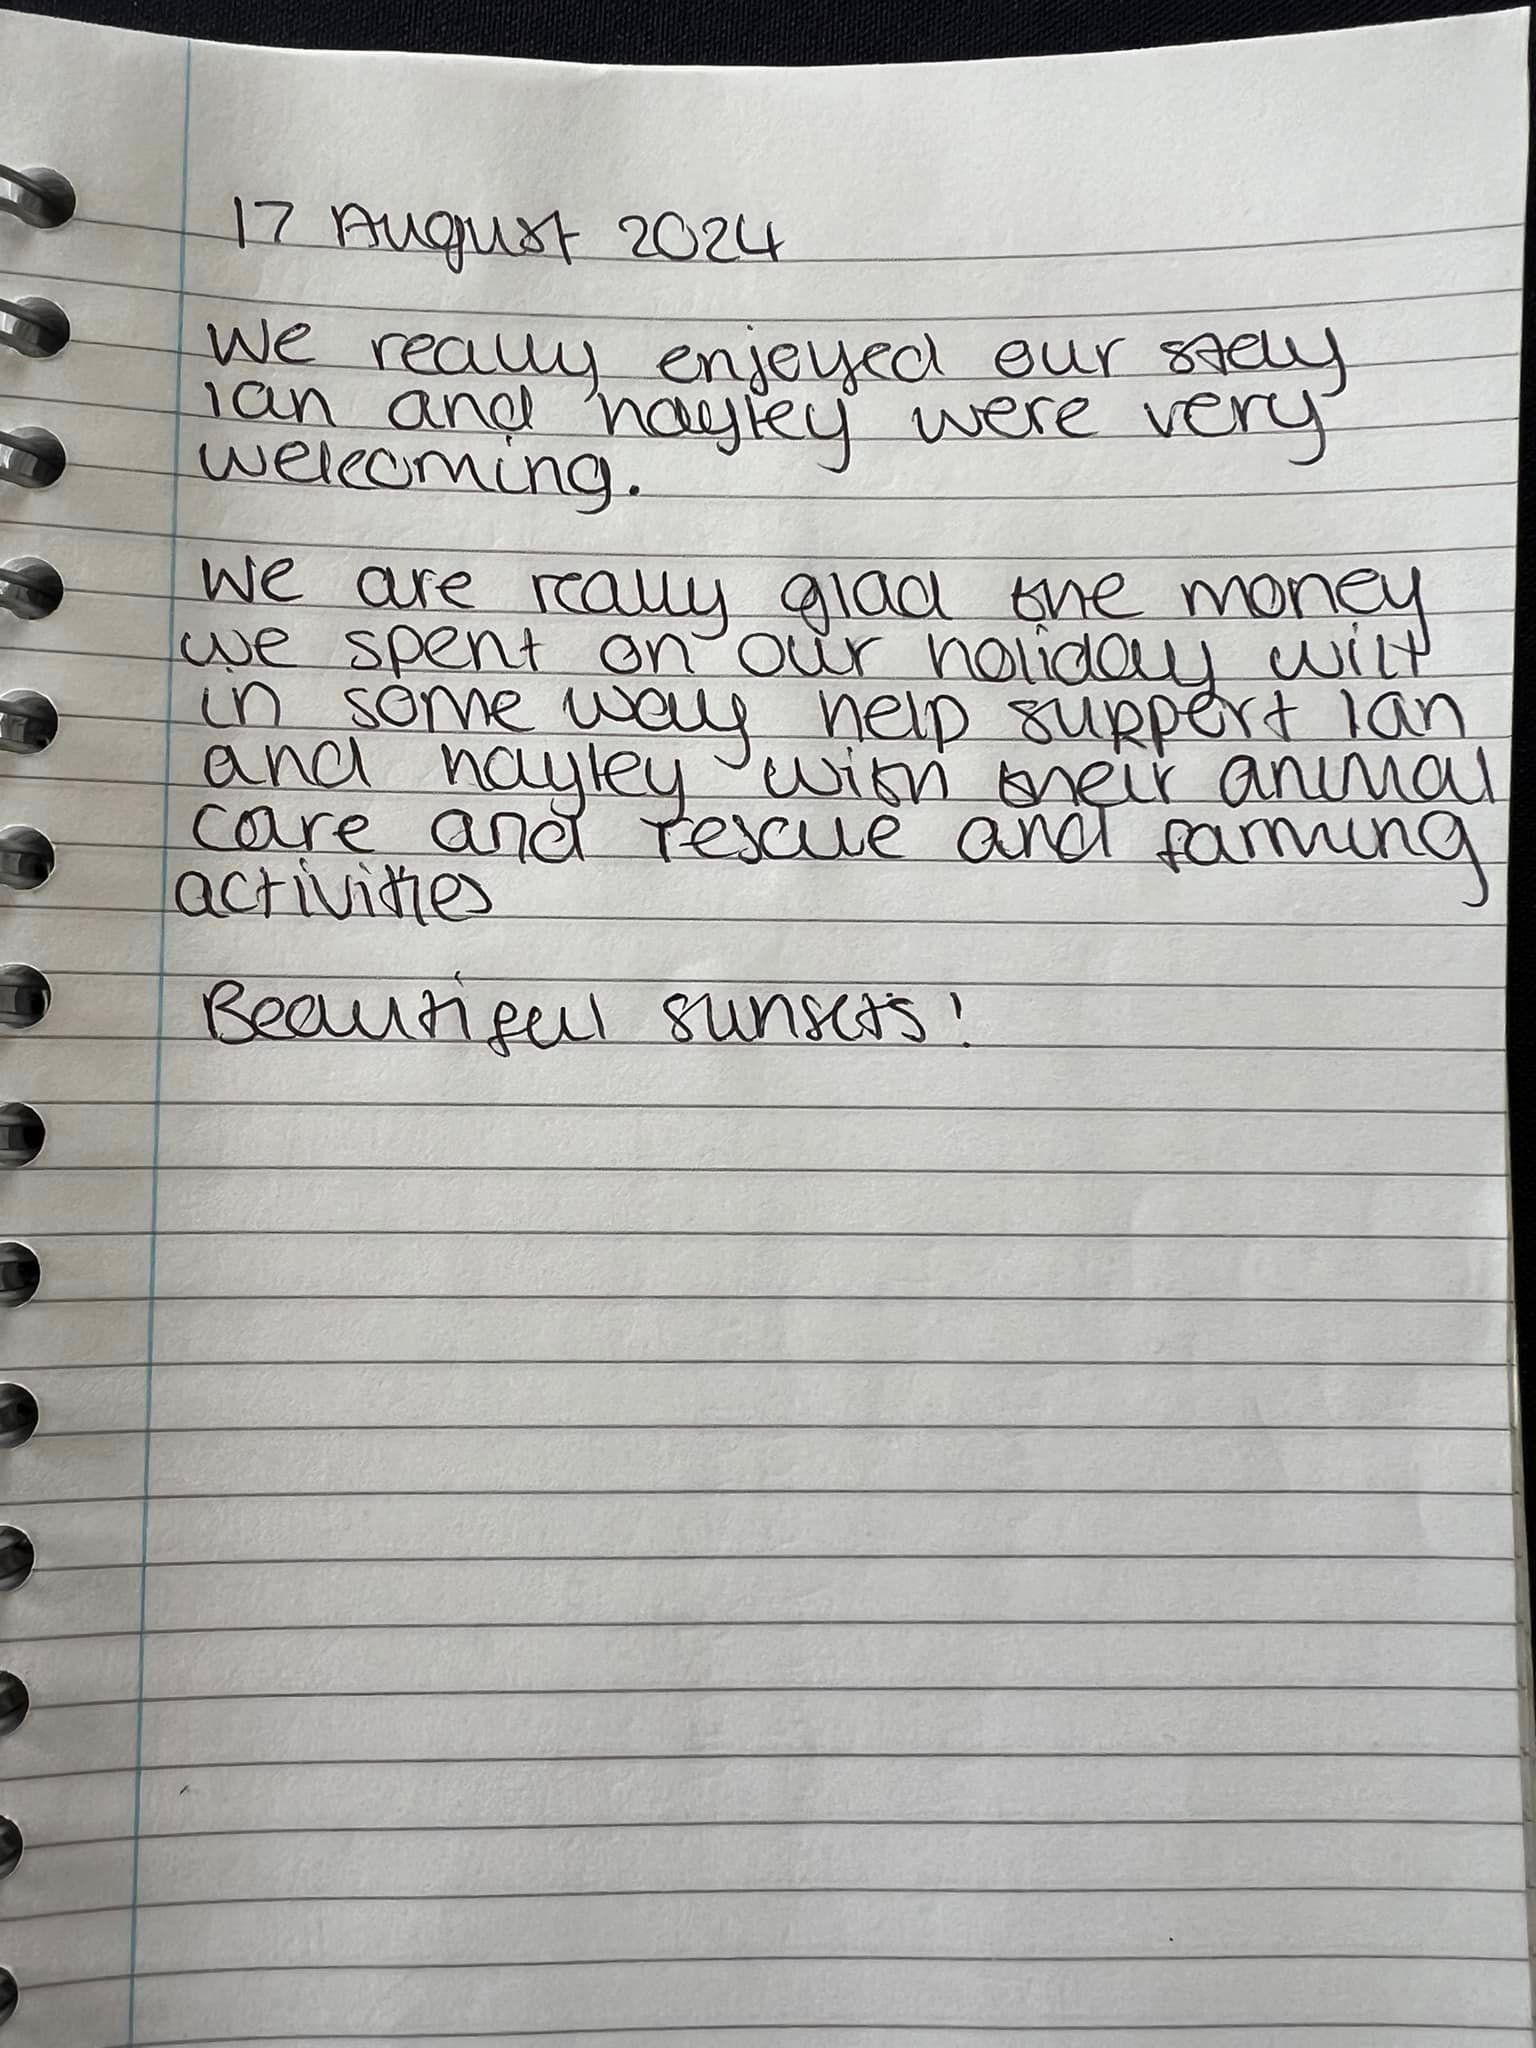 17 August 2024
We really enjoyed our stay
Ian and hayley were very
welcoming.
We are really glad the money
we spent on our holiday will
in some way help support Ian
and hayley with their animal
care and rescue and farming
activities
Beautiful sunsets!